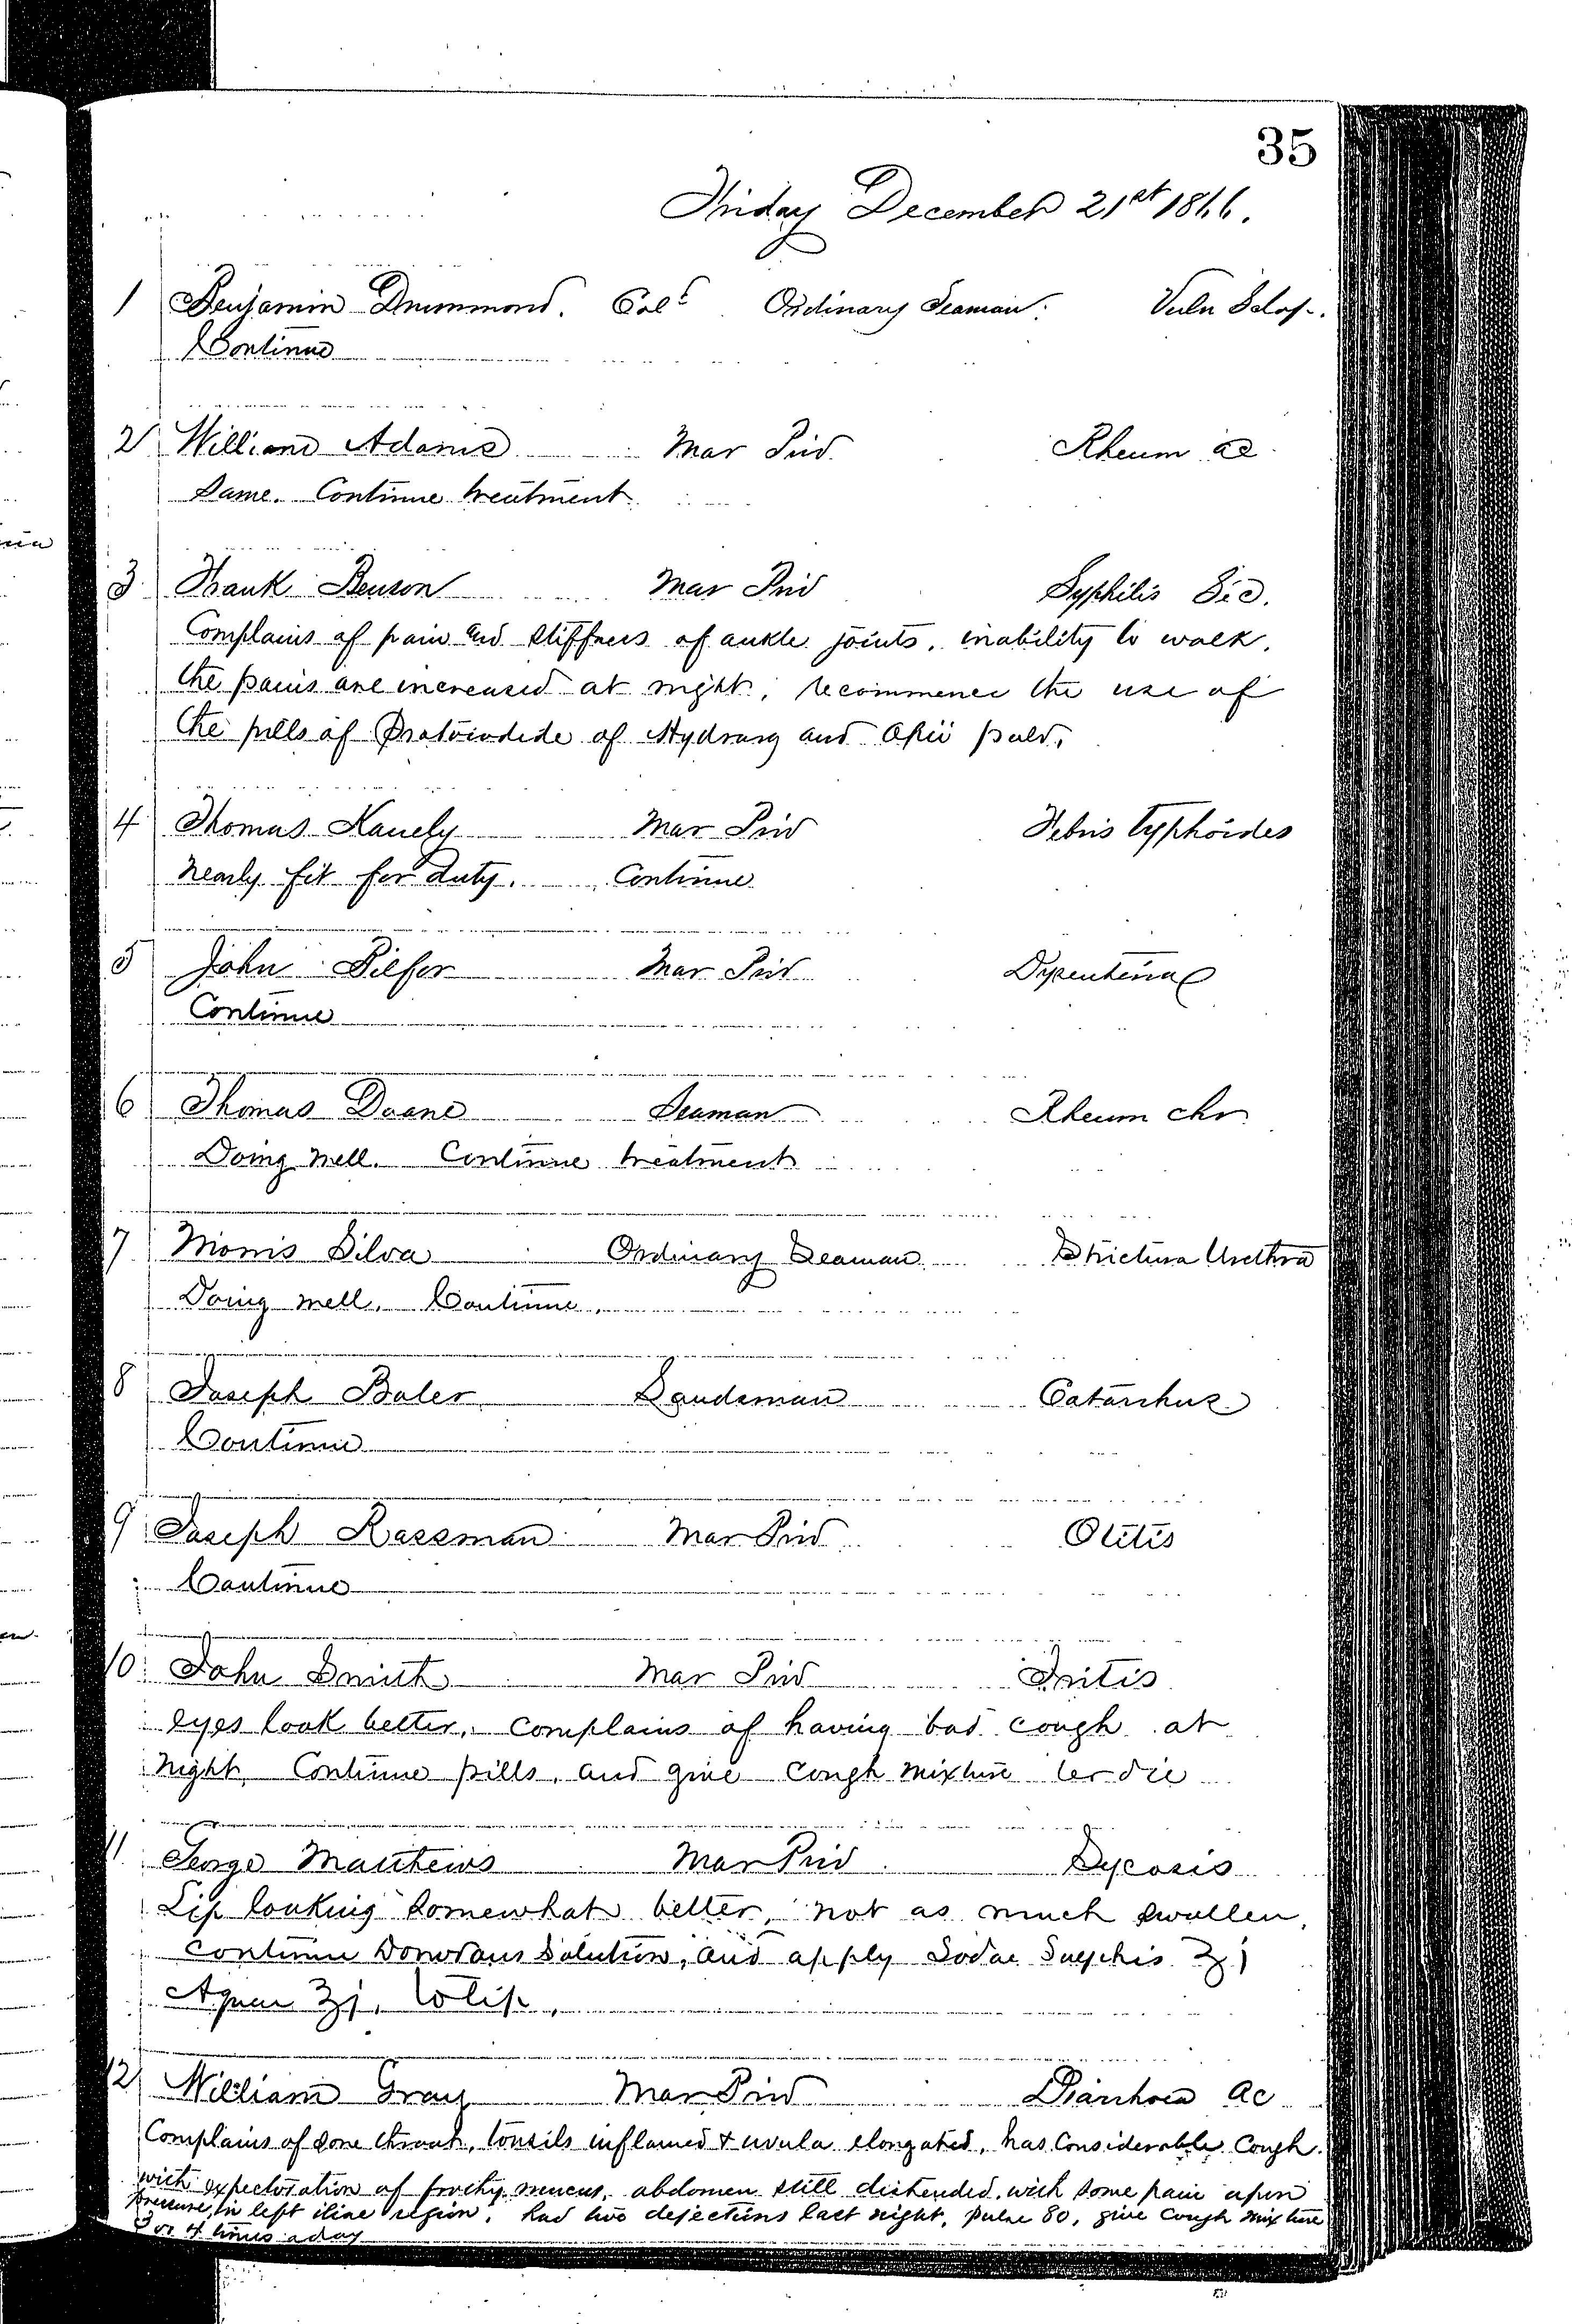 35
Friday December 21st 1866.
1 Benjamin Drummond. Cold Ordinary Seaman. Vuln Sclop.
Continue
2 William Adams Mar Priv Rheum ac
Same. Continue treatment
3 Frank Benson Mar Priv Syphilis Sec.
Complains of pain and stiffness of ankle joints, inability to walk.
the pains are increased at night, recommence the use of
the pills of Protoiodide of Hydrarg and Opii pulv.
4 Thomas Mar Priv Febris typhoides
nearly fit for duty. Continue
5 John Pilfer Mar Priv Dysenteria
Continue
6 Thomas Doane Seaman Rheum chr
Doing well. Continue treatment
7 Morris Silva Ordinary Seaman Strictura Urethra
Doing well. Continue.
8 Joseph Baler Landsman Catarrhus
Continue
9 Joseph Rassman Mar Priv Otitis
Continue
10 John Smith Mar Priv Iritis
eyes look better. complains of having bad cough at
night. Continue pills, and give cough mixture ter die
11 George Matthews Mar Priv Sycosis
Lip looking somewhat better, not as much swollen,
continue Donovans Solution, and apply Sodae Sulphis ʒj
Aquae ℥j. to lip.
12 William Gray Mar Priv Diarrhoea ac
Complains of sore throat, tonsils inflamed & uvula elongated, has considerable cough.
with expectoration of frothy mucus, abdomen still distended, with some pain upon
pressure, in left iliac region, had two dejections last night, pulse 80, give cough mixture
3 or 4 times a day